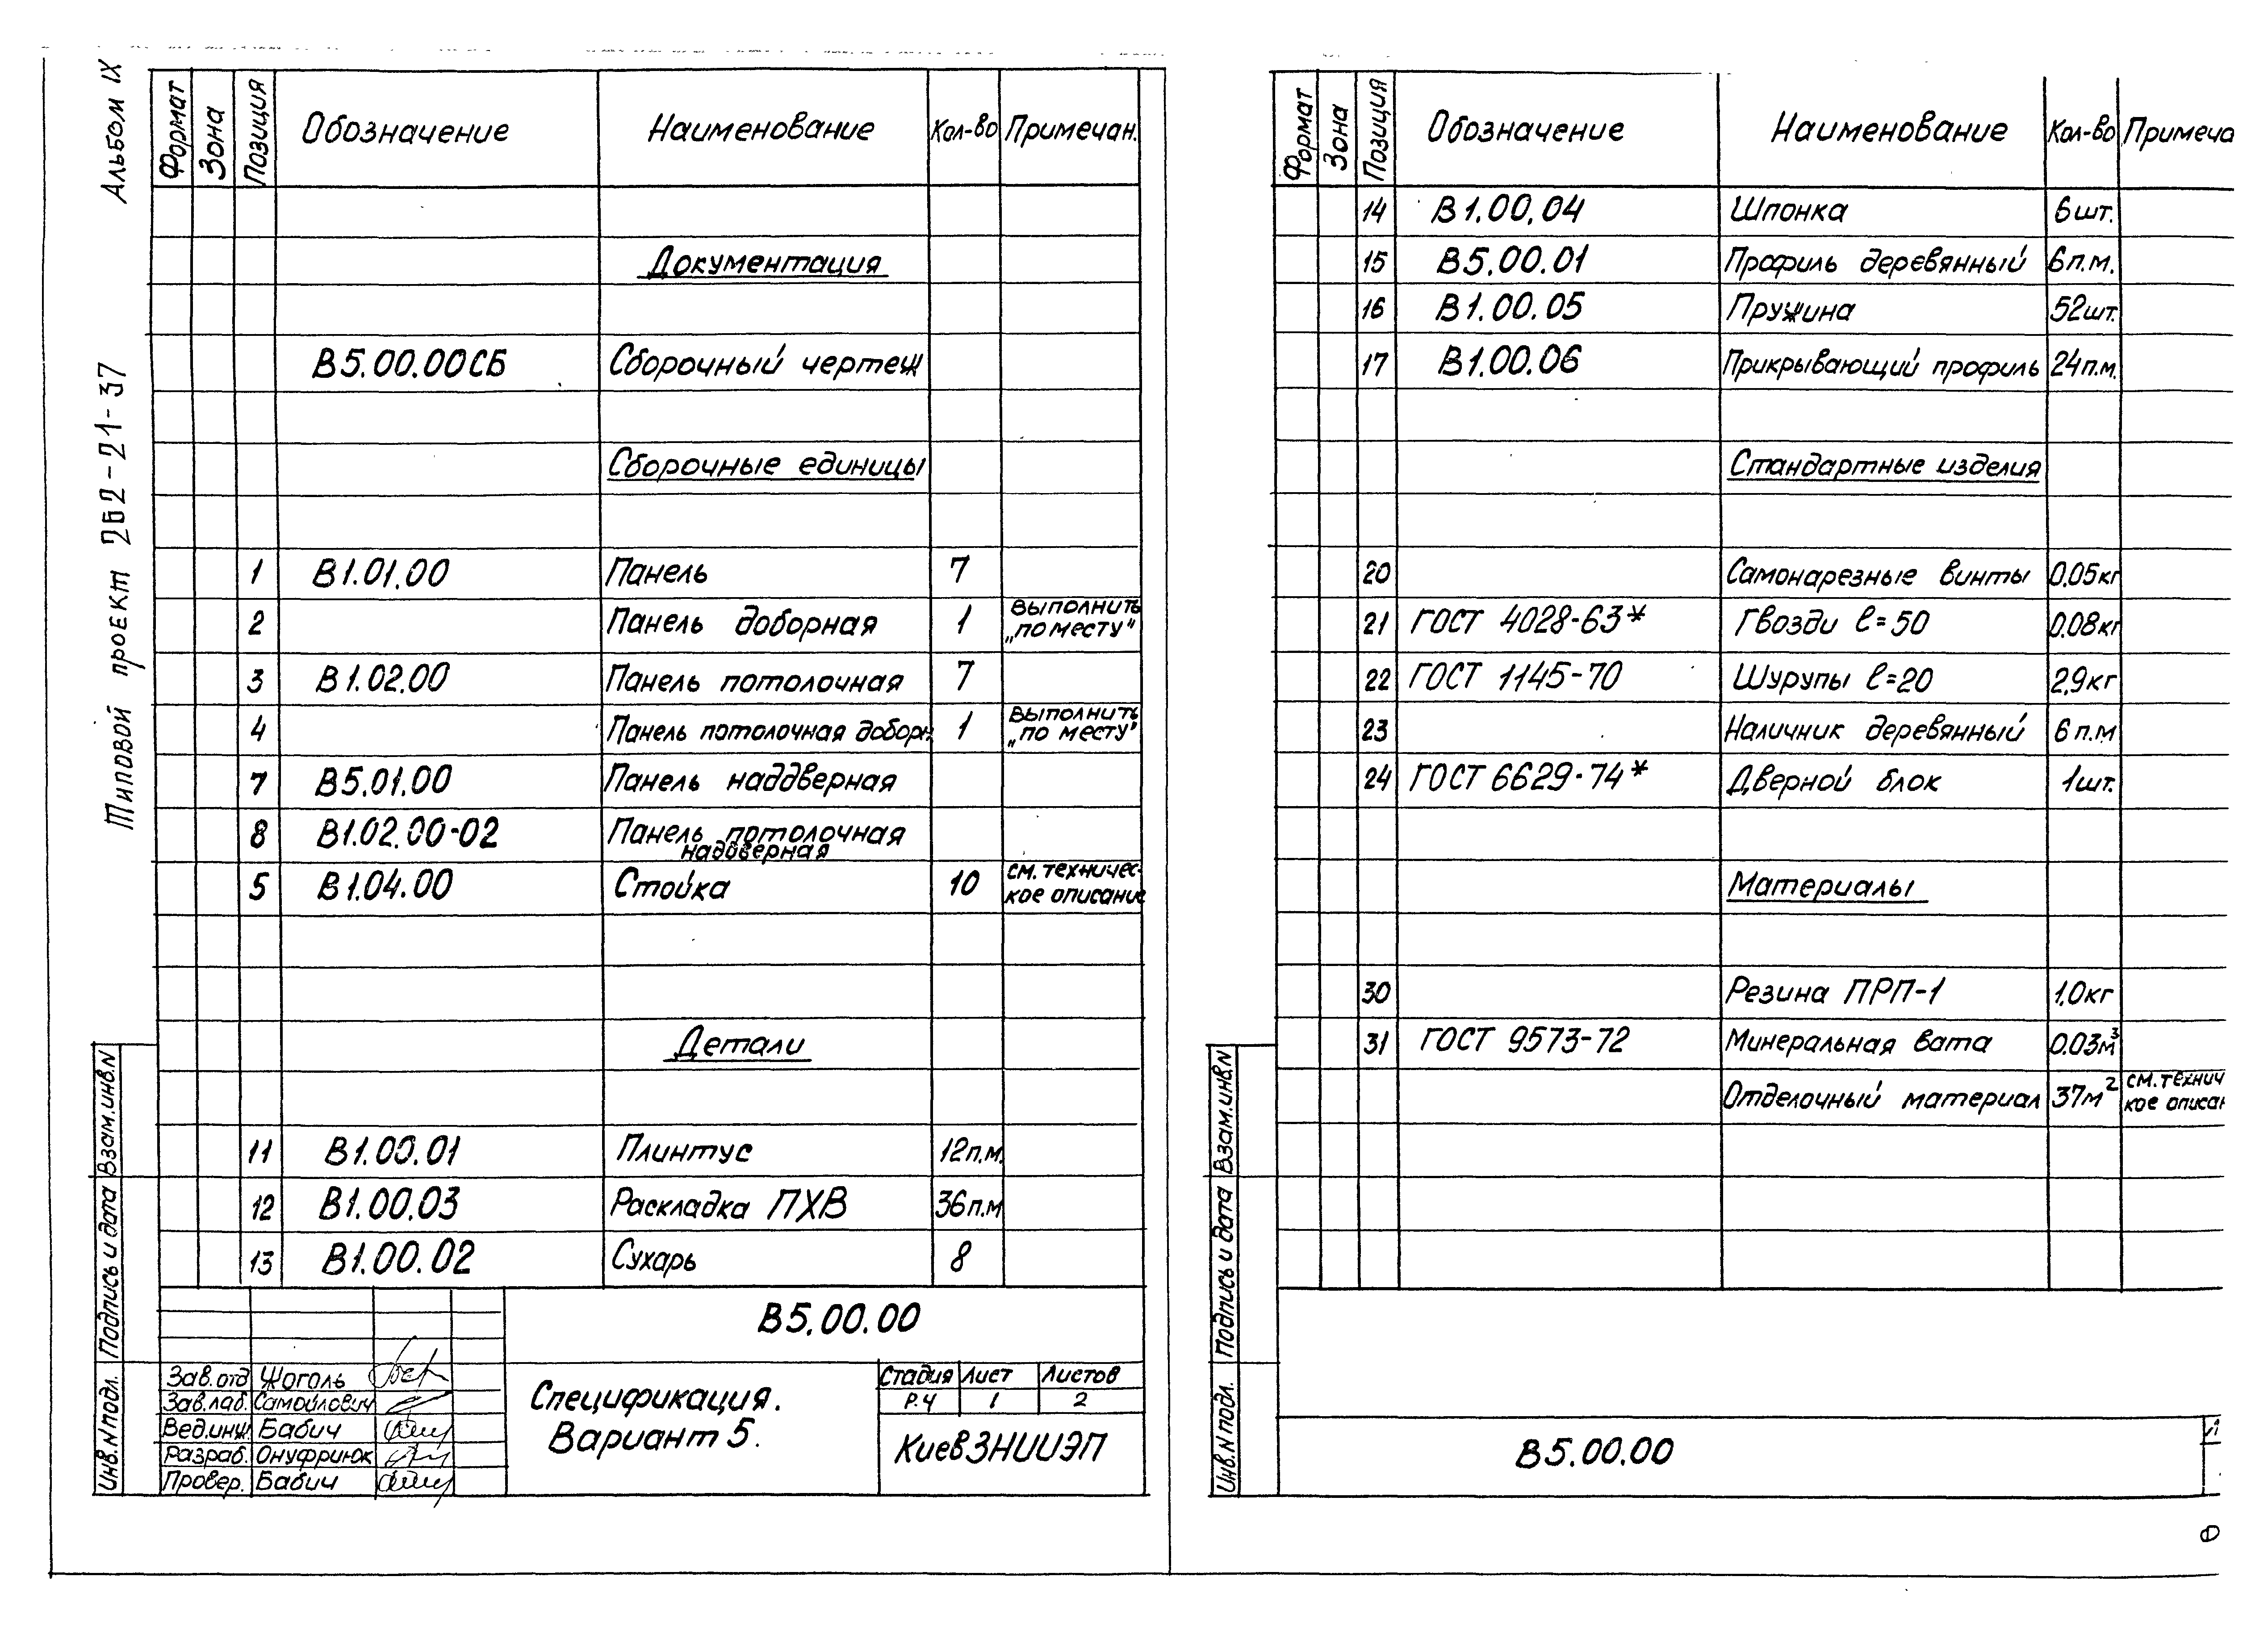 Альбом IX
Типовой проект 262-21-37
Формат Зона Позиция Обозначение Наименование Кол-во Примечан.
Документация
В5.00.00СБ Сборочный чертеж
Сборочные единицы
1 В1.01.00 Панель 7
2 Панель доборная 1 выполнить „по месту"
3 В1.02.00 Панель потолочная 7
4 Панель потолочная доборн. 1 выполнить „по месту"
7 В5.01.00 Панель наддверная
8 В1.02.00-02 Панель потолочная
наддверная
5 В1.04.00 Стойка 10 см. техничес-
кое описание
Детали
11 В1.00.01 Плинтус 12п.м.
12 В1.00.03 Раскладка ПХВ 36п.м
13 В1.00.02 Сухарь 8
Инв.N подл. Подпись и дата Взам.инв.N
В5.00.00
Зав.отд Жоголь
Зав.лаб. Самойлович
Вед.инж. Бабич
Разраб. Онуфриюк
Провер. Бабич
Спецификация.
Вариант 5.
Стадия Лист Листов
Р.Ч 1 2
КиевЗНИИЭП
Формат Зона Позиция Обозначение Наименование Кол-во Примеча
14 В1.00.04 Шпонка 6шт.
15 В5.00.01 Профиль деревянный 6п.м.
16 В1.00.05 Пружина 52шт.
17 В1.00.06 Прикрывающий профиль 24п.м.
Стандартные изделия
20 Самонарезные винты 0.05кг
21 ГОСТ 4028-63* Гвозди ℓ=50 0.08кг
22 ГОСТ 1145-70 Шурупы ℓ=20 2,9кг
23 Наличник деревянный 6п.м
24 ГОСТ 6629-74* Дверной блок 1шт.
Материалы
30 Резина ПРП-1 1.0кг
31 ГОСТ 9573-72 Минеральная вата 0.03м³
Отделочный материал 37м² см. технич
кое описан
Инв.N подл. Подпись и дата Взам.инв.N
В5.00.00